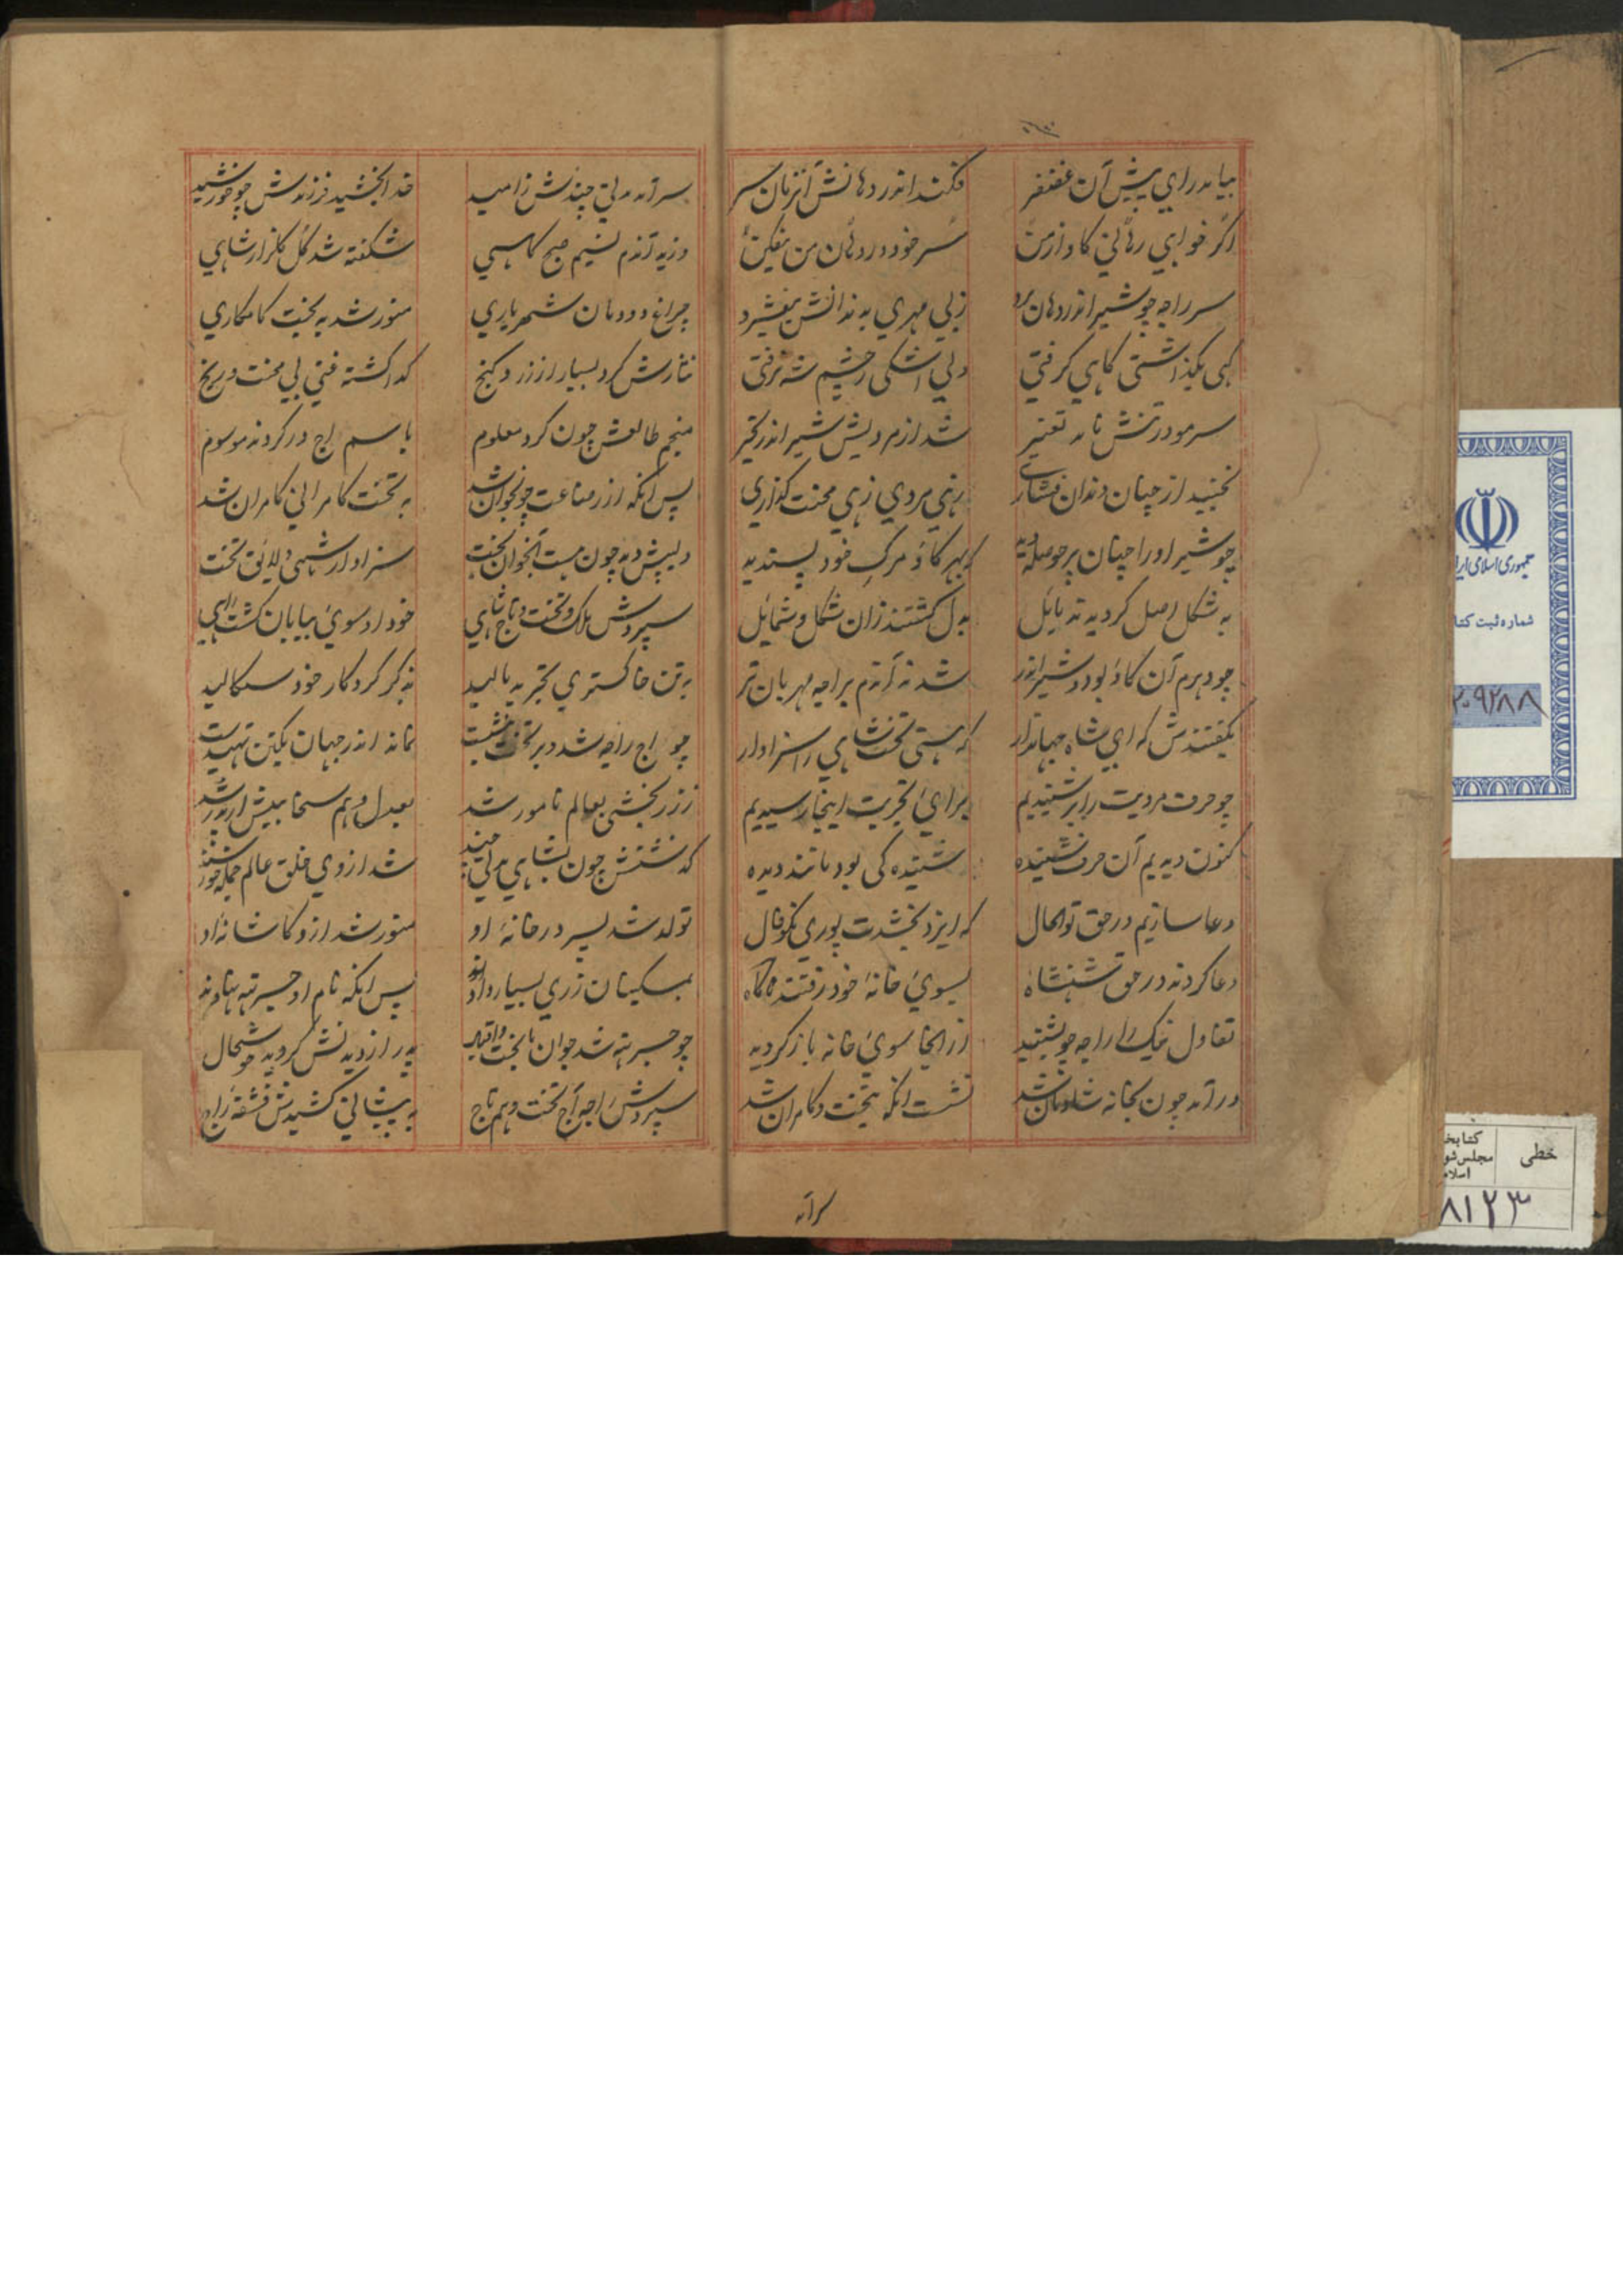 بیامد رای پیش آن غضنفر
فکند اندر دهانش آنزمان سر
اگر خواهی رهائی کاو از من
سر خود در دهان من بیفکن
سر راجه چو شیر اندر دهان برد
ز بی مهری بدندانش بیفشرد
کهی بکذاشتی کاهی کرفتی
ولی اشکی ز چشم شه نرفتی
سر مو در تنش نامد تغییر
شد از مردیش شیر اندر تحیر
نجنبید از چنان دندان فشاری
زهی مردی زهی محنت کذاری
چو شیر او را چنان پر حوصله دید
که بهر کاو مرک خود پسندید
به شکل اصل کردیدند مایل
بدل کشتند زان شکل و شمایل
چو دهرم آن کاو بود و شیر اندر
شدند آندم براجه مهربان تر
بکفتندش که ای شاه جهاندار
که هستی تخت شاهی را سزاوار
چو حرف مردیت را بر شنیدیم
برای تجربت اینجا رسیدیم
کنون دیدیم آن حرف شنیده
شنیده کی بود مانند دیده
دعا سازیم در حق تو الحال
که ایزد بخشدت پوری نکوفال
دعا کردند در حق شهنشاه
بسوی خانهٔ خود رفتند آنکاه
تفاول نیک را راجه چو بشنید
از انجا سوی خانه باز کردید
در آمد چون بخانه شادمان شد
نشست انکه بتخت و کامران شد
سرآمد
سرآمد مدتی چندش ز امید
خدا بخشید فرزندش چو خورشید
وزید آندم نسیم صبح کاهی
شکفته شد کل کلزار شاهی
چراغ دودمان شهریاری
منور شد به بخت کامکاری
نثارش کرد بسیار از زر و کنج
کدا کشته غنی بی محنت و رنج
منجم طالعش چون کرد معلوم
باسم اج در کردند موسوم
پس انکه از رضاعت چو نجوان شد
به تخت کامرانی کامران شد
دلیپش دید چون هست آنجوان بخت
سزاوار شهی و لایق تخت
سپردش ملک و تخت و تاج شاهی
خود او سوی بیابان کشت راهی
به تن خاکستری تجرید مالید
بذکر کردکار خود سکالید
چو اج راجه شد و بر تخت بنشست
نماند اندر جهان یکتن تهیدست
ز زر بخشی بعالم نامور شد
بعدل و هم سخا بیش از پدر شد
کذشتش چون بشاهی مدتی چند
شد از وی خلق عالم جمله خورسند
تولد شد پسر در خانهٔ او
منور شد ازو کاشانهٔ او
بمسکینان زری بسیار دادند
پس انکه نام او جسرته نهادند
چو جسرته شد جوان با بخت و اقبال
پدر از دیدنش کردید خوشحال
سپردش راجه اج تخت و هم تاج
به پیشانی کشیدش قشقهٔ راج
جمهوری اسلامی ایران
شماره ثبت کتاب
۲۰۹۲۸۸
خطی
کتابخانه
مجلس شورای
اسلامی
۸۱۲۳